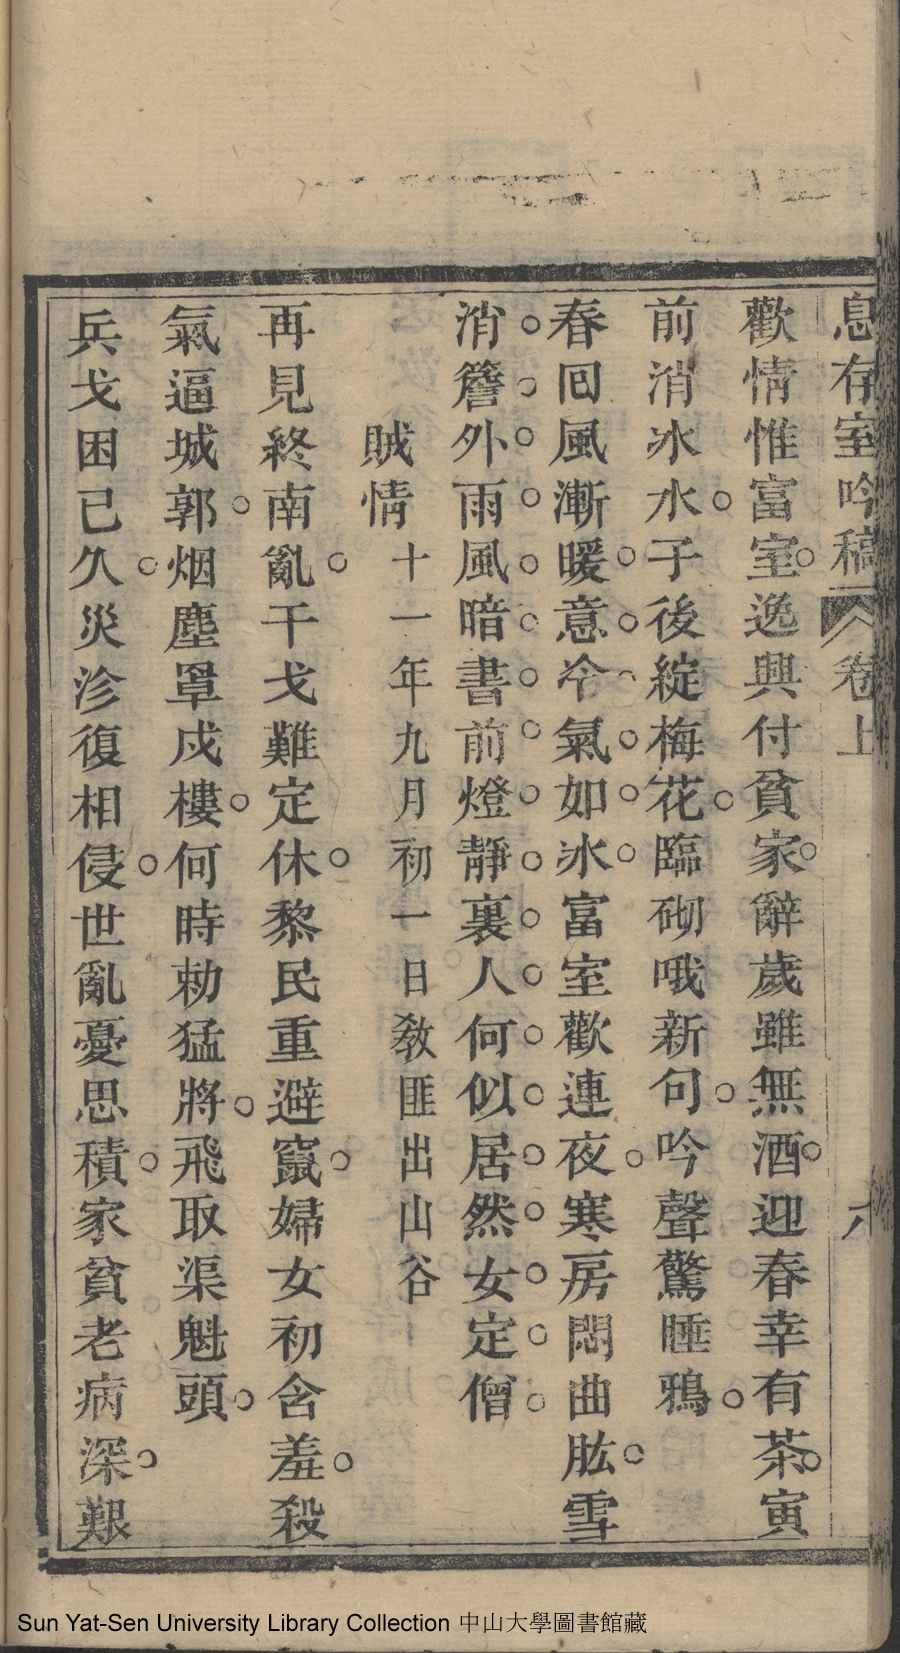 息存室吟稿 卷上 六
歡情惟富室逸興付貧家辭歲雖無酒迎春幸有茶寅
前消冰水子後綻梅花臨砌哦新句吟聲驚睡鴉
春回風漸暖意冷氣如冰富室歡連夜寒房悶曲肱雪
消簷外雨風暗書前燈靜裏人何似居然女定僧
賊情十一年九月初一日教匪出山谷
再見終南亂干戈難定休黎民重避竄婦女初含羞殺
氣逼城郭烟塵罩戍樓何時勅猛將飛取渠魁頭
兵戈困已久災沴復相侵世亂憂思積家貧老病深艱
Sun Yat-Sen University Library Collection 中山大學圖書館藏